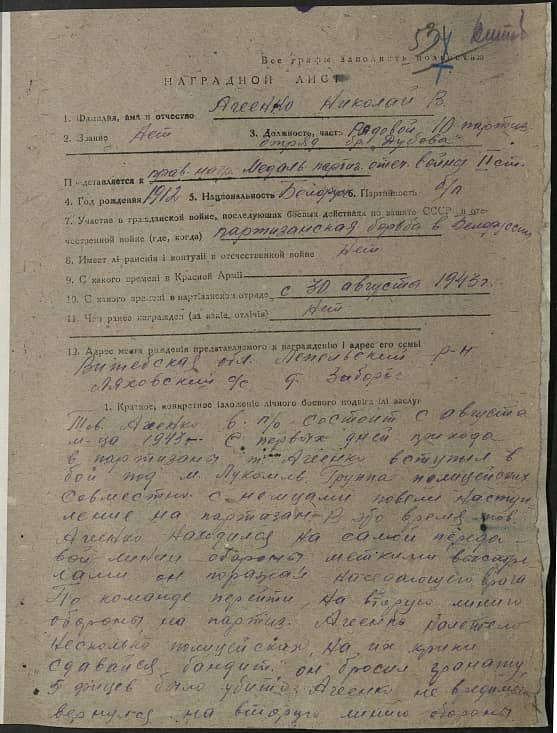 534
Все графы заполнять полностью
НАГРАДНОЙ ЛИСТ
1. Фамилия, имя и отчество Агеенко Николай В.
2. Звание Нет 3. Должность, часть Рядовой, 10 партиз.
отряд бр. Дубова
Представляется к прав. наги. Медаль партиз. отеч. война II ст.
4. Год рождения 1912 5. Национальность Белорус 6. Партийность б/п
7. Участие в гражданской войне, последующих боевых действиях по защите СССР и оте-
чественной войне (где, когда) партизанская борьба в Белоруссии
8. Имеет лі ранения і контузіі в отечественной войне Нет
9. С какого времени в Красной Арміі
10. С какого времени в партизанском отряде с 30 августа 1943 г.
11. Чем ранее награжден (за какіе, отлічія) Нет
12. Адрес места рождения представляемого к награждению і адрес его семьі
Витебская обл. Лепельский р-н
Ляховский с/с д. Заборье
1. Краткое, конкретное ізложеніе лічного боевого подвіга ілі заслуг
Тов. Агеенко в п/о состоит с августа
м-ца 1943 г. С первых дней прихода
в партизаны т. Агеенко вступил в
бой под м. Лукомль. Группа полицейских
совместно с немцами повели наступ
ление на партизан. В это время тов.
Агеенко находился на самой передо
вой линии обороны меткими выстре
лами он поражал наседающего врага
По команде перейти на вторую линию
обороны на партиз. Агеенко налетело
несколько полицейских, на их крики
сдавайся бандит, он бросил гранату,
5 фрицев было убито, Агеенко не вредимо
вернулся на вторую линию обороны.